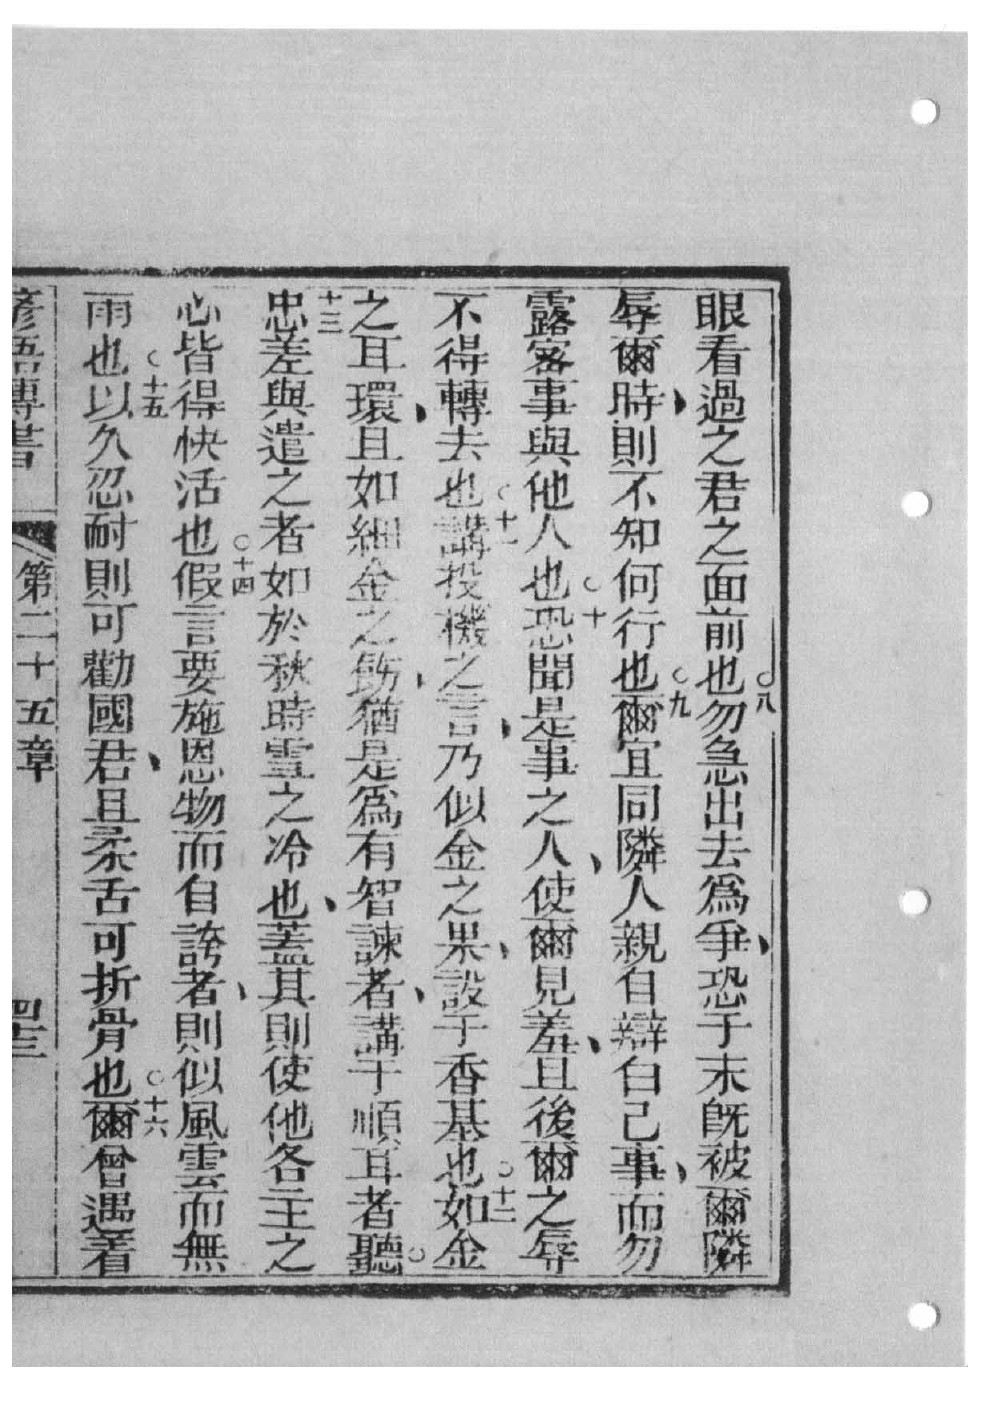 眼看過之君之面前也○八勿急出去爲爭恐于末旣被爾隣
辱爾時則不知何行也○九爾宜同隣人親自辯白己事而勿
露密事與他人也○十恐聞是事之人使爾見羞且後爾之辱
不得轉去也○十一講投機之言乃似金之果設于香基也○十二如金
之耳環且如細金之飭猶是爲有智諫者講于順耳者聽○
十三忠差與遣之者如於秋時雪之冷也蓋其則使他各主之
心皆得快活也○十四假言要施恩物而自誇者則似風雲而無
雨也○十五以久忍耐則可勸國君且柔舌可折骨也○十六爾曾遇着
諺語傳書 第二十五章 四十三